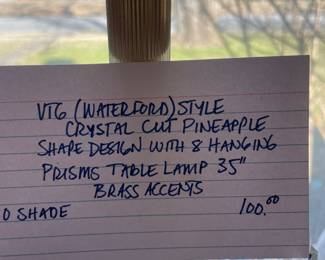 VTG (WATERFORD) STYLE
CRYSTAL CUT PINEAPPLE
SHAPE DESIGN WITH 8 HANGING
PRISMS TABLE LAMP 35"
BRASS ACCENTS
O SHADE 100.00